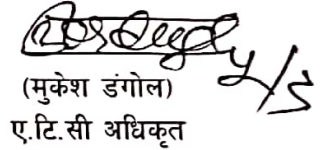 (मुकेश डंगोल)
ए.टि.सी अधिकृत